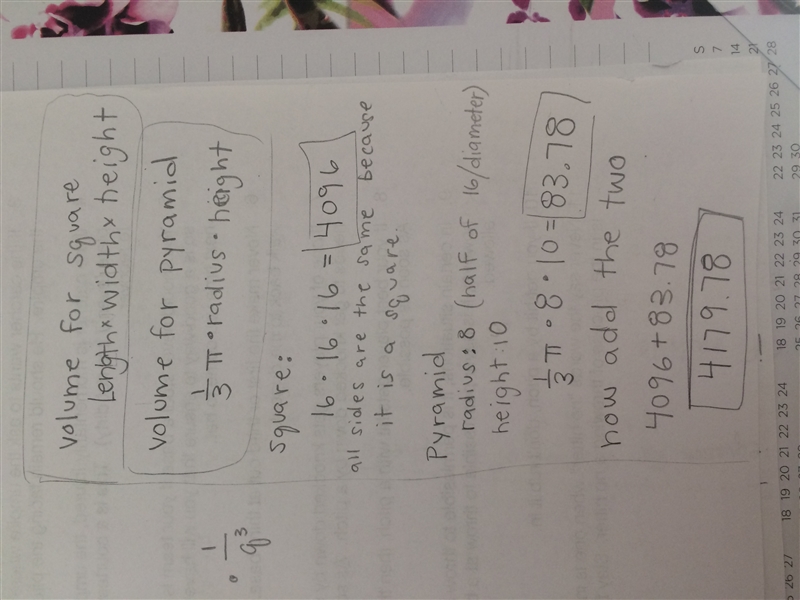 Volume for square
Length x width x height
Volume for pyramid
1/3 π • radius • height
Square:
16 • 16 • 16 = 4096
all sides are the same because
it is a square.
Pyramid
radius: 8 (half of 16/diameter)
height: 10
1/3 π • 8 • 10 = 83.78
now add the two
4096 + 83.78
4179.78
• 1/9³
S
7
14
21
28
18 19 20 21 22 23 24
22 23 24 25 26 27
29 30